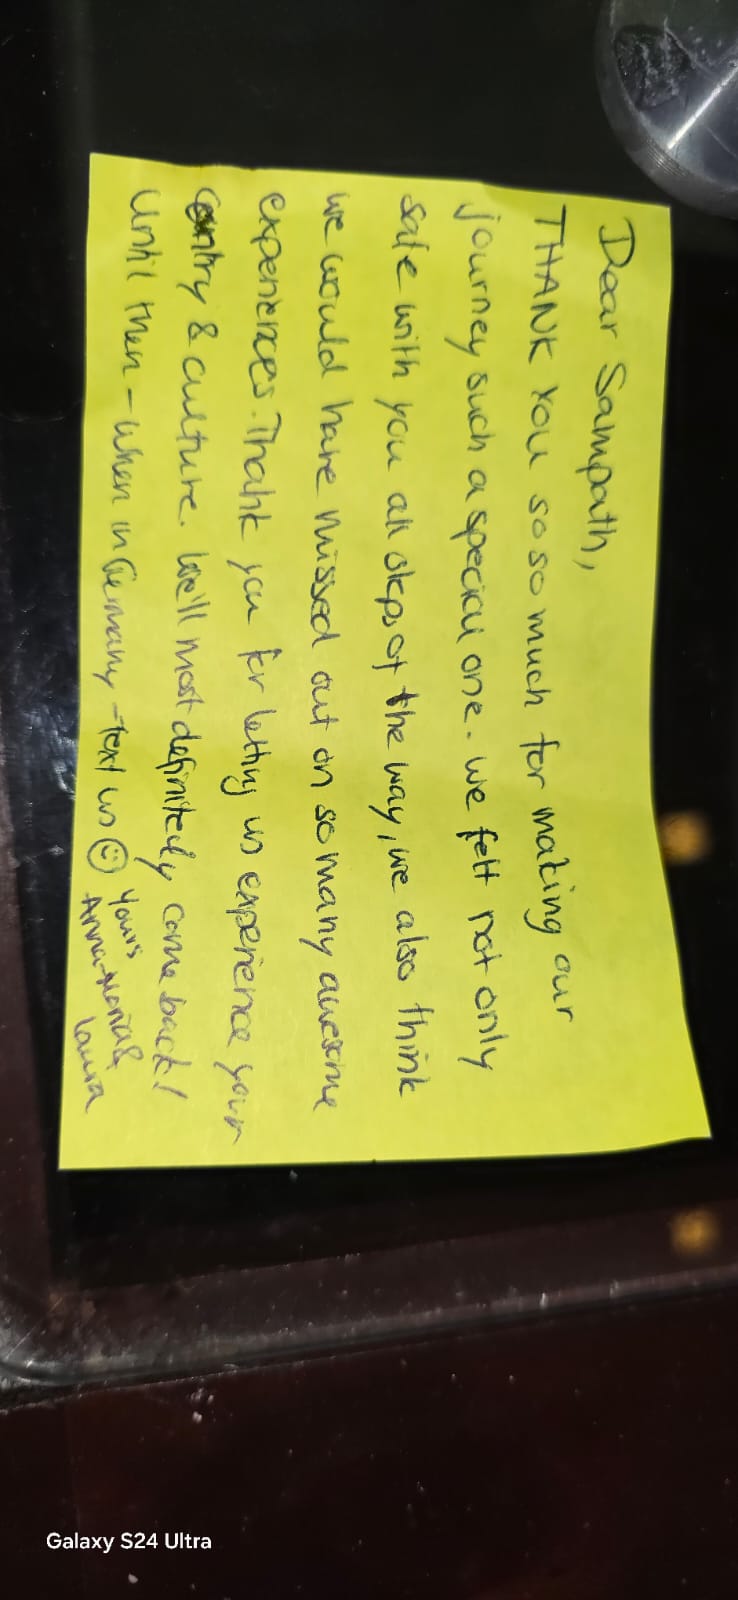 Dear Sampath,
THANK YOU so so much for making our
journey such a special one. We felt not only
safe with you all steps of the way, we also think
we would have missed out on so many awesome
experiences. Thank you for letting us experience your
country & culture. We'll most definitely come back!
Until then - when in Germany - text us ☺
Yours
Anna-Maria &
Laura
Galaxy S24 Ultra